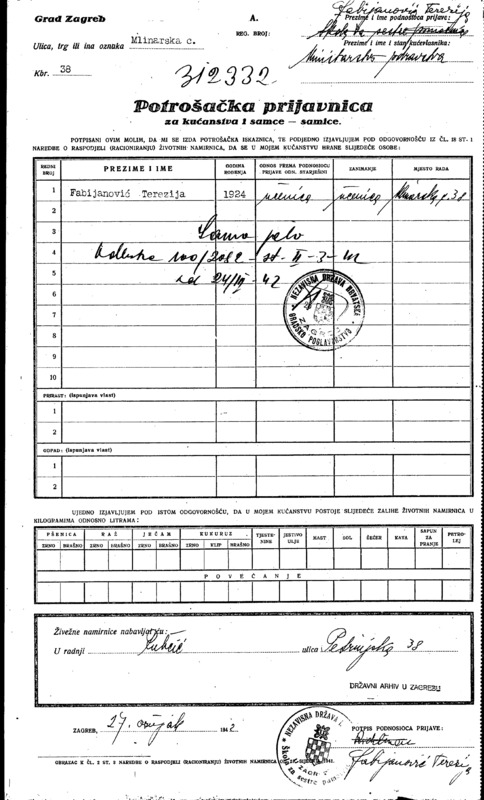 Grad Zagreb
A.
REG. BROJ:
Fabijanović Terezija
Prezime i ime podnosioca prijave:
Ulica, trg ili ina oznaka Mlinarska c.
Škola za sestre pomoćnice
Prezime i ime i stan kućevlasnika:
Kbr. 38
Ministarstvo zdravstva
312332
Potrošačka prijavnica
za kućanstva i samce – samice.
POTPISANI OVIM MOLIM, DA MI SE IZDA POTROŠAČKA ISKAZNICA, TE PODJEDNO IZJAVLJUJEM POD ODGOVORNOŠĆU IZ ČL. 18 ST. 1
NAREDBE O RASPODJELI (RACIONIRANJU) ŽIVOTNIH NAMIRNICA, DA SE U MOJEM KUĆANSTVU HRANE SLIJEDEĆE OSOBE:
REDNI BROJ PREZIME I IME GODINA ROĐENJA ODNOS PREMA PODNOSIOCU PRIJAVE ODN. STARJEŠINI ZANIMANJE MJESTO RADA
1 Fabijanović Terezija 1924 učenica učenica Mlinarska c. 38
2
3 Samo
4
5 od 24/III - 42
6
7
8
9
10
NEZAVISNA DRŽAVA HRVATSKA
GRADSKO POGLAVARSTVO
ZAGREB
PRIRAST: (Ispunjava vlast)
1
2
ODPAD: (Ispunjava vlast)
1
2
UJEDNO IZJAVLJUJEM POD ISTOM ODGOVORNOŠĆU, DA U MOJEM KUĆANSTVU POSTOJE SLIJEDEĆE ZALIHE ŽIVOTNIH NAMIRNICA U
KILOGRAMIMA ODNOSNO LITRAMA:
PŠENICA RAŽ JEČAM KUKURUZ TJESTENINE JESTIVO ULJE MAST SOL ŠEĆER KAVA SAPUN ZA PRANJE PETROLEJ
ZRNO BRAŠNO ZRNO BRAŠNO ZRNO BRAŠNO ZRNO KLIP BRAŠNO
POVEĆANJE
Živežne namirnice nabavljat ću:
U radnji ulica Petrinjska 38
DRŽAVNI ARHIV U ZAGREBU
ZAGREB, 27. ožujak 1942
NEZAVISNA DRŽAVA
Škola za sestre
ZAGREB
POTPIS PODNOSIOCA PRIJAVE:
Fabijanović Terezija
OBRAZAC K ČL. 2 ST. 2 NAREDBE O RASPODJELI (RACIONIRANJU) ŽIVOTNIH NAMIRNICA